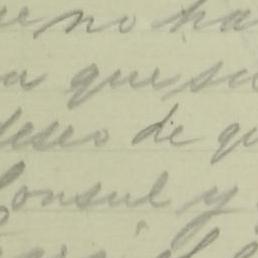 ue no ha
a que su
deseo de qu
Consul y